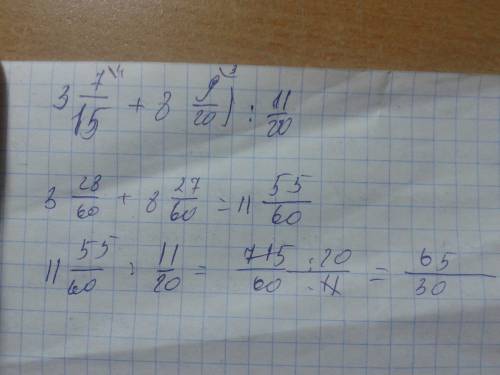 3 7/15 \4 + 8 9/20 \3 ) : 11/20
3 28/60 + 8 27/60 = 11 55/60
11 55/60 : 11/20 = 715/60 · 20/11 = 65/30